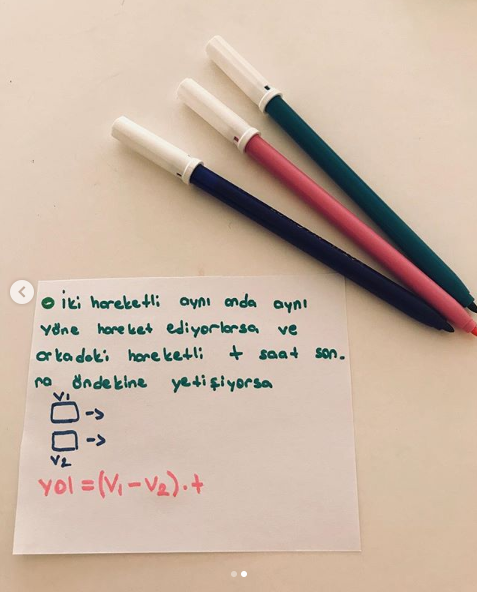 İki hareketli aynı anda aynı
yöne hareket ediyorlarsa ve
arkadaki hareketli t saat son-
ra öndekine yetişiyorsa
V1
V2
yol = (V1 - V2) . t